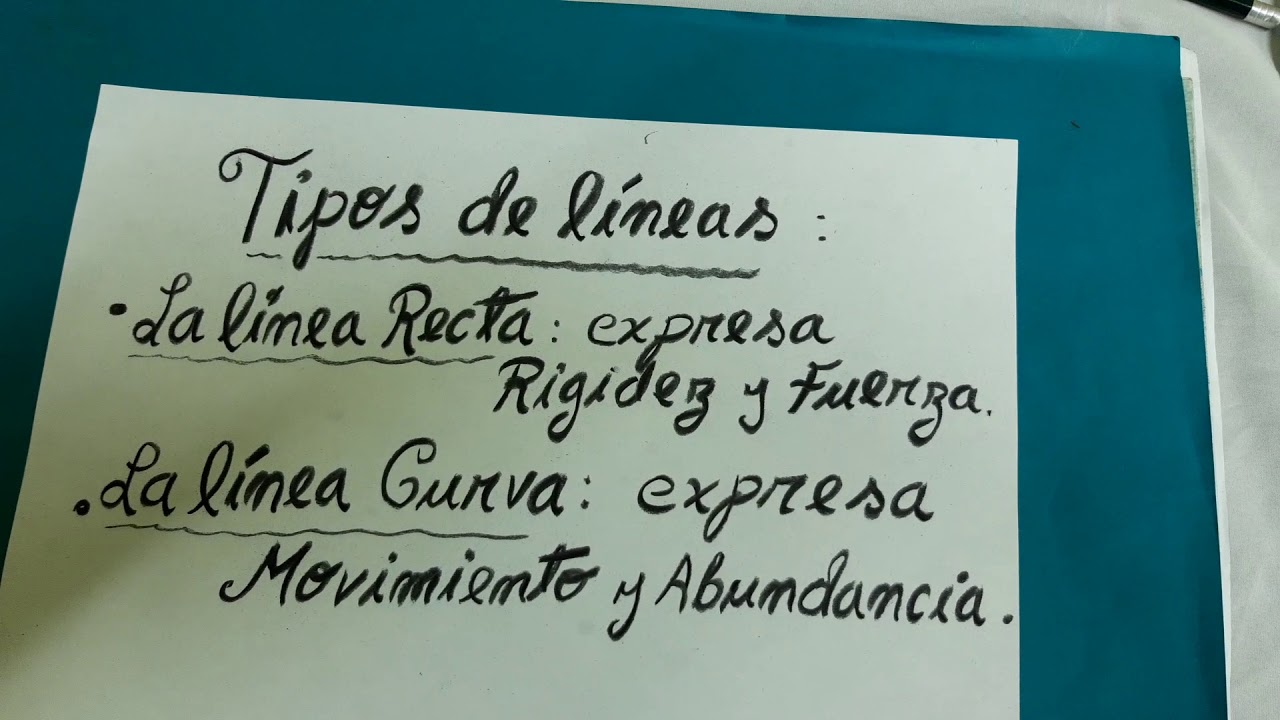 Tipos de líneas :
• La línea Recta : expresa
Rigidez y Fuerza.
• La línea Curva : expresa
Movimiento y Abundancia.